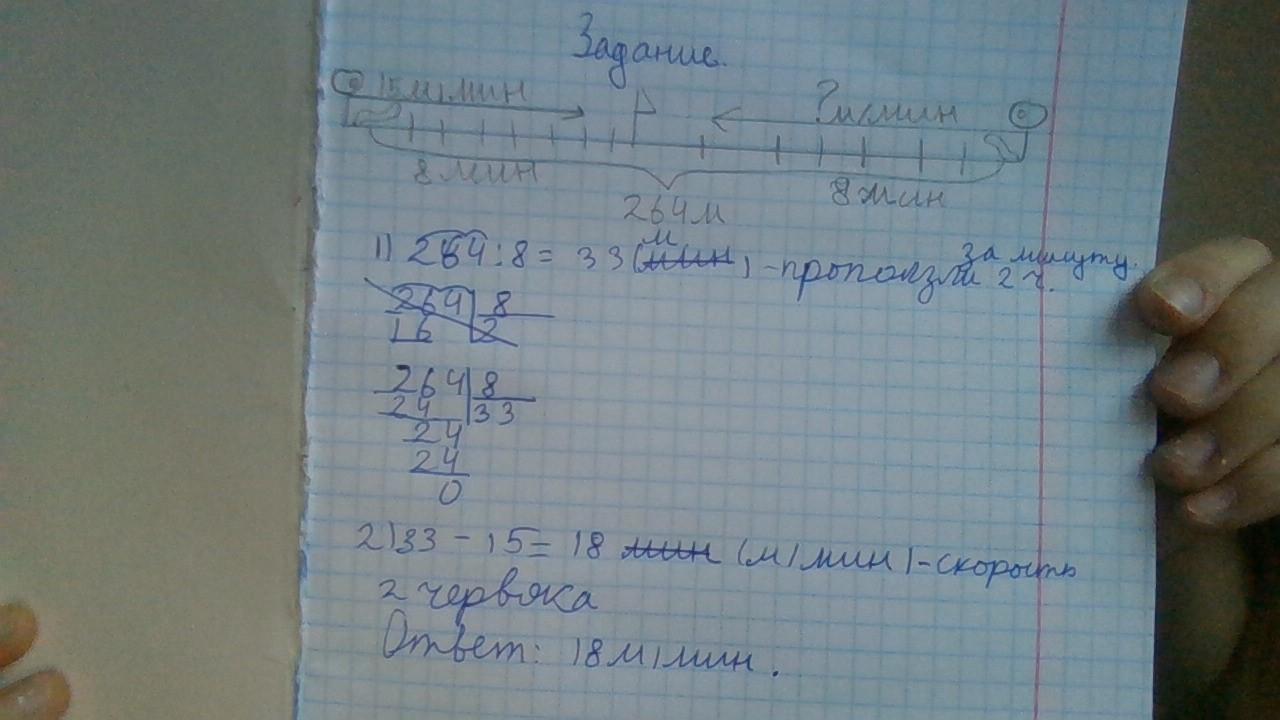 Задание.
15м/мин ?м/мин
8 мин 8 мин
264м
1) 264:8 = 33 (мин м) - проползли 2 ч. за минуту.
264 8
16 2
264 8
24 33
24
24
0
2) 33 - 15 = 18 мин (м/мин) - скорость
2 червяка
Ответ: 18 м/мин.